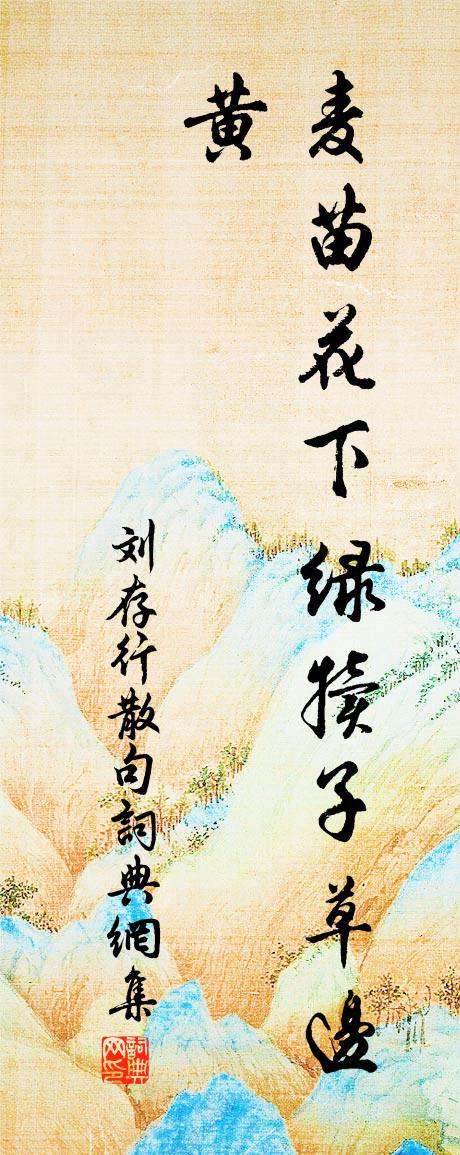 麦苗花下绿犊子草邊
黄
刘存行散句詞典網集
詞典
网印